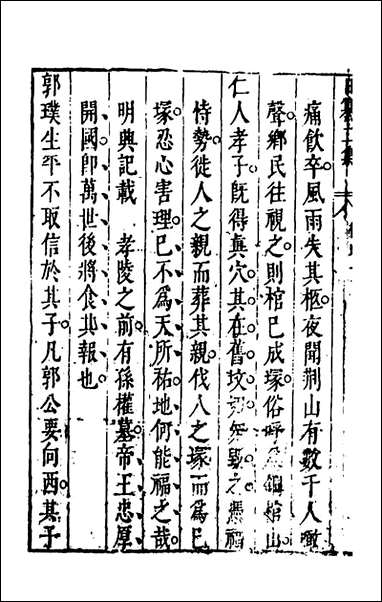 痛飲卒風雨失其柩夜聞荆山有數千人噉
聲鄉民往視之則棺已成塚俗呼 棺山
仁人孝子旣得眞穴其在舊坟 毀之憑福
恃勢徙人之親而葬其親伐人之塚而爲已
塚忍心害理已不爲天所祐地何能福之哉
明興記載 孝陵之前有孫權墓帝王忠厚
開國卽萬世後將食其報也
郭璞生平不取信於其子凡郭公要向西其子